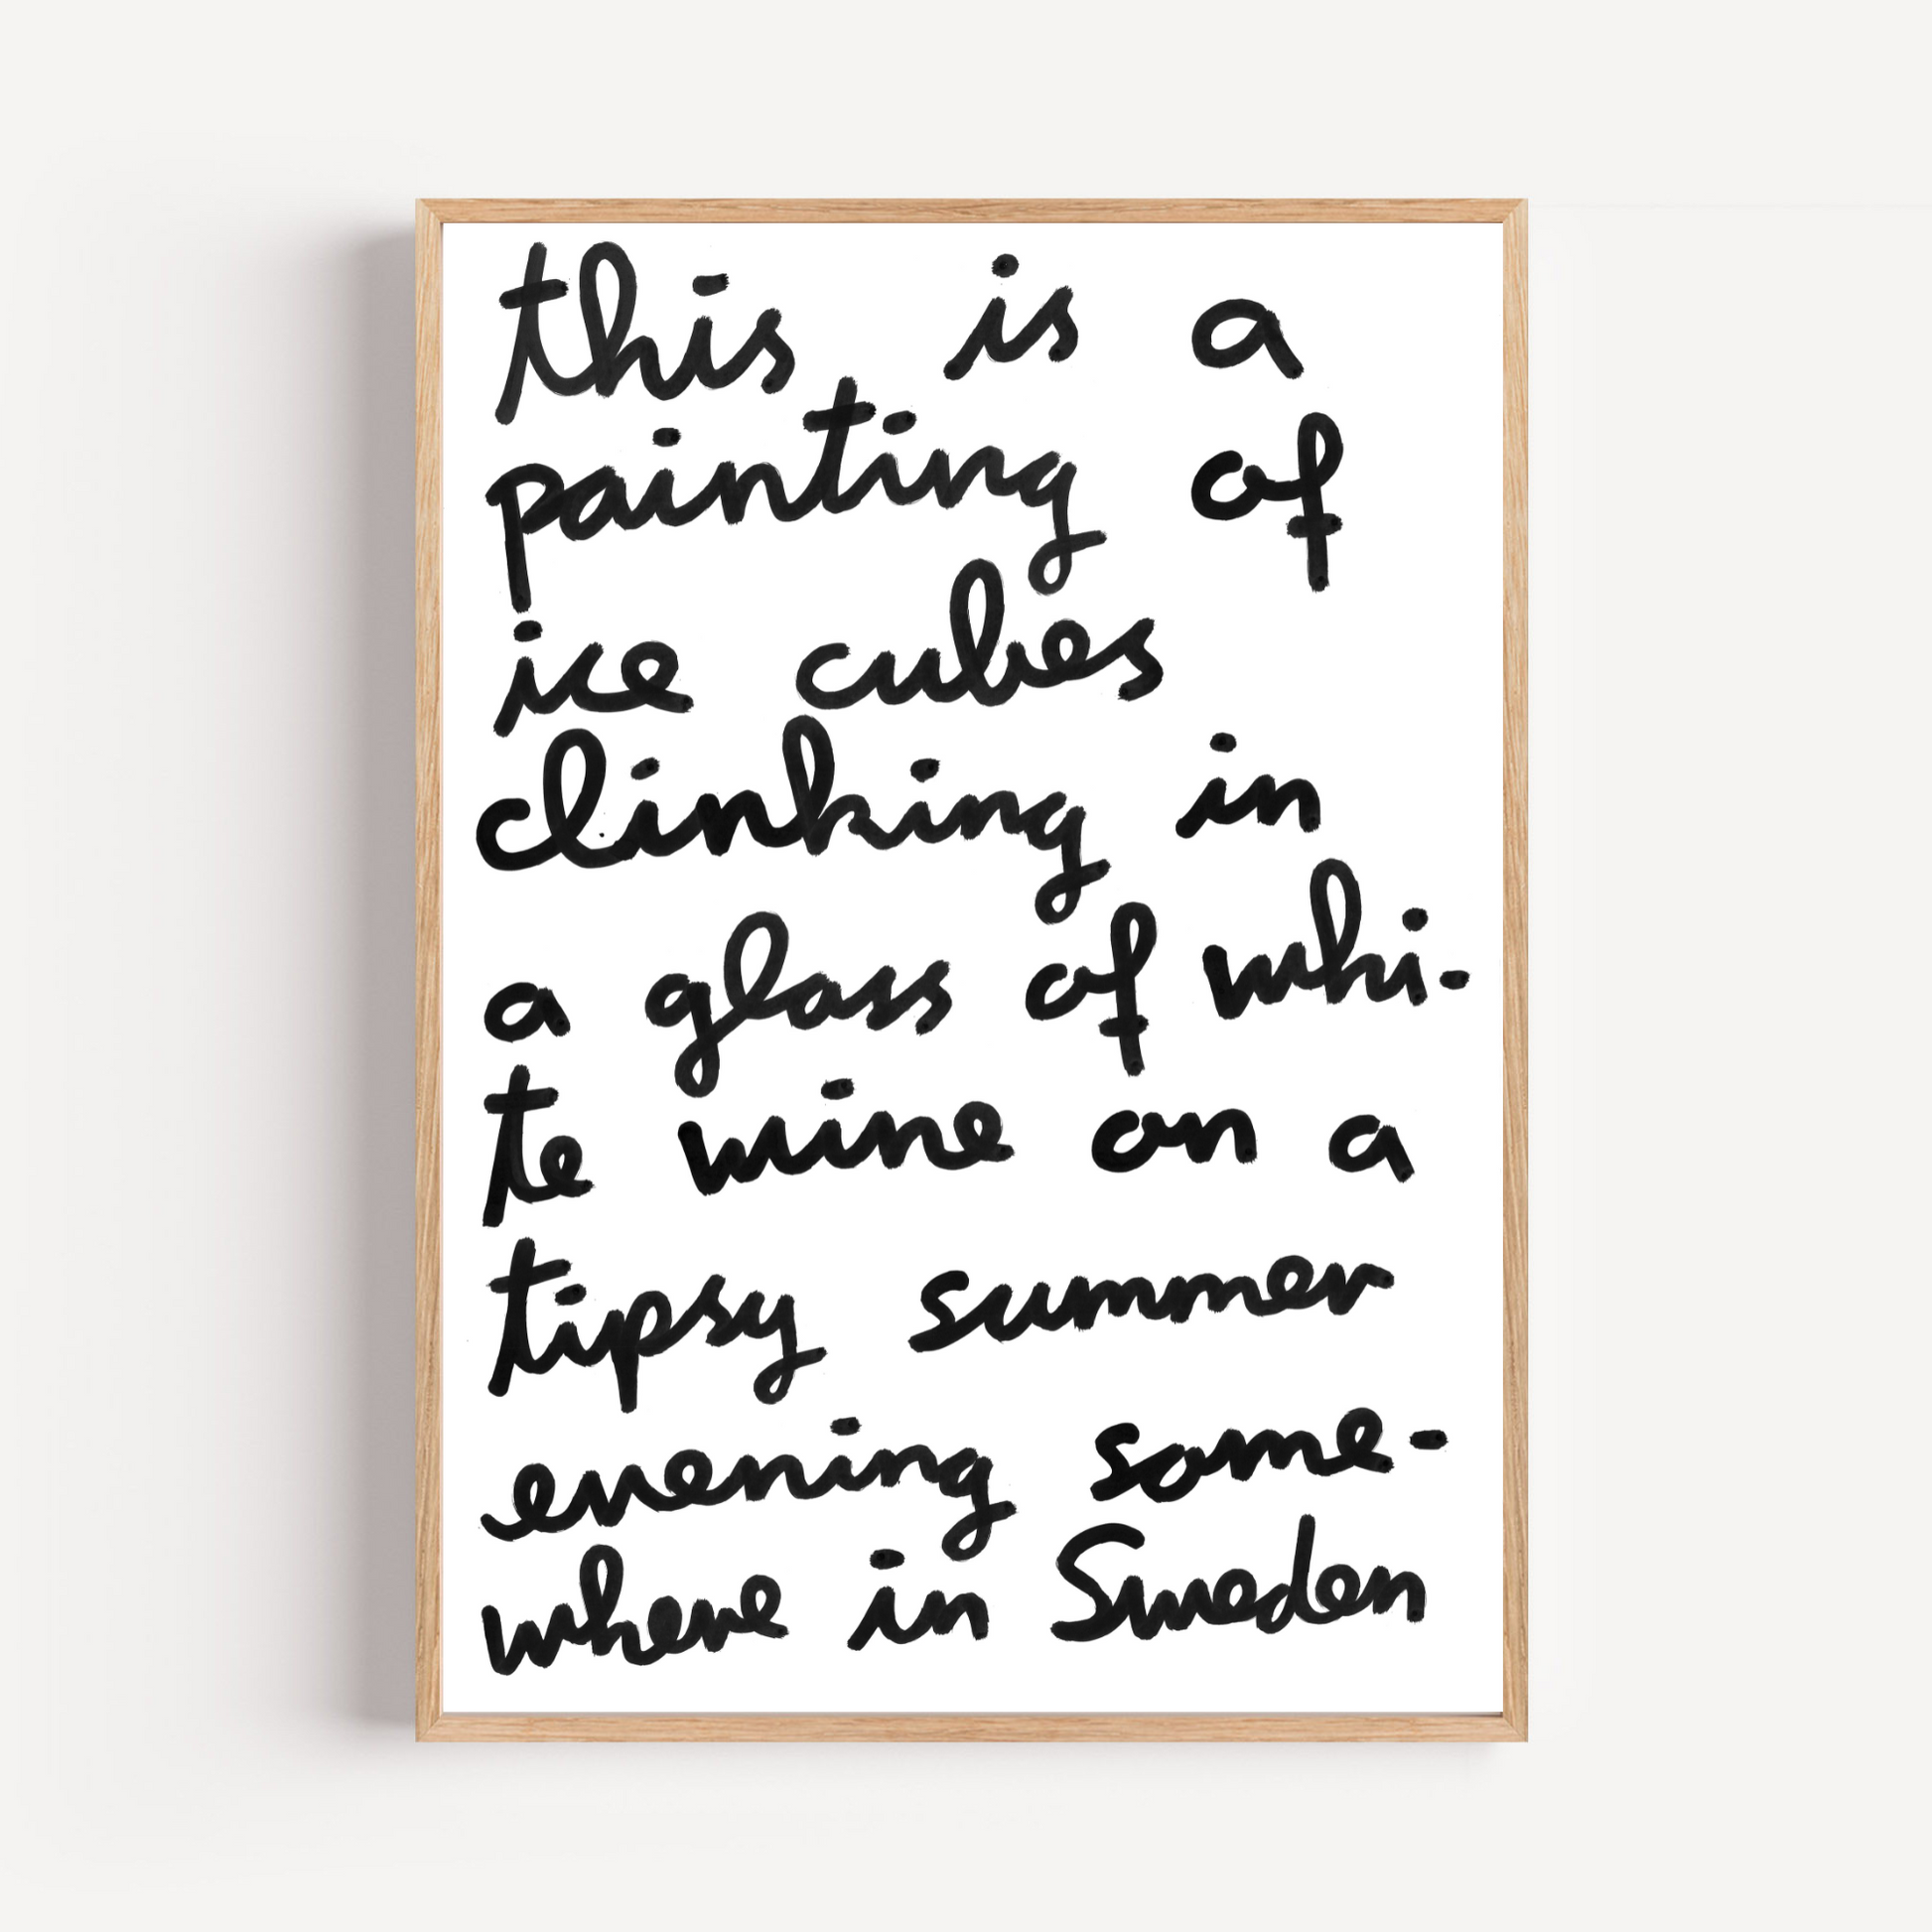 this is a
painting of
ice cubes
clinking in
a glass of whi-
te wine on a
tipsy summer
evening some-
where in Sweden